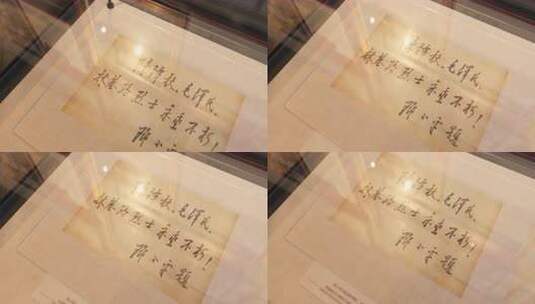 陈潭秋、毛泽民、
林基路烈士永垂不朽！
邓小平题
陈潭秋、毛泽民、
林基路烈士永垂不朽！
邓小平题
陈潭秋、毛泽民、
林基路烈士永垂不朽！
邓小平题
陈潭秋、毛泽民、
林基路烈士永垂不朽！
邓小平题